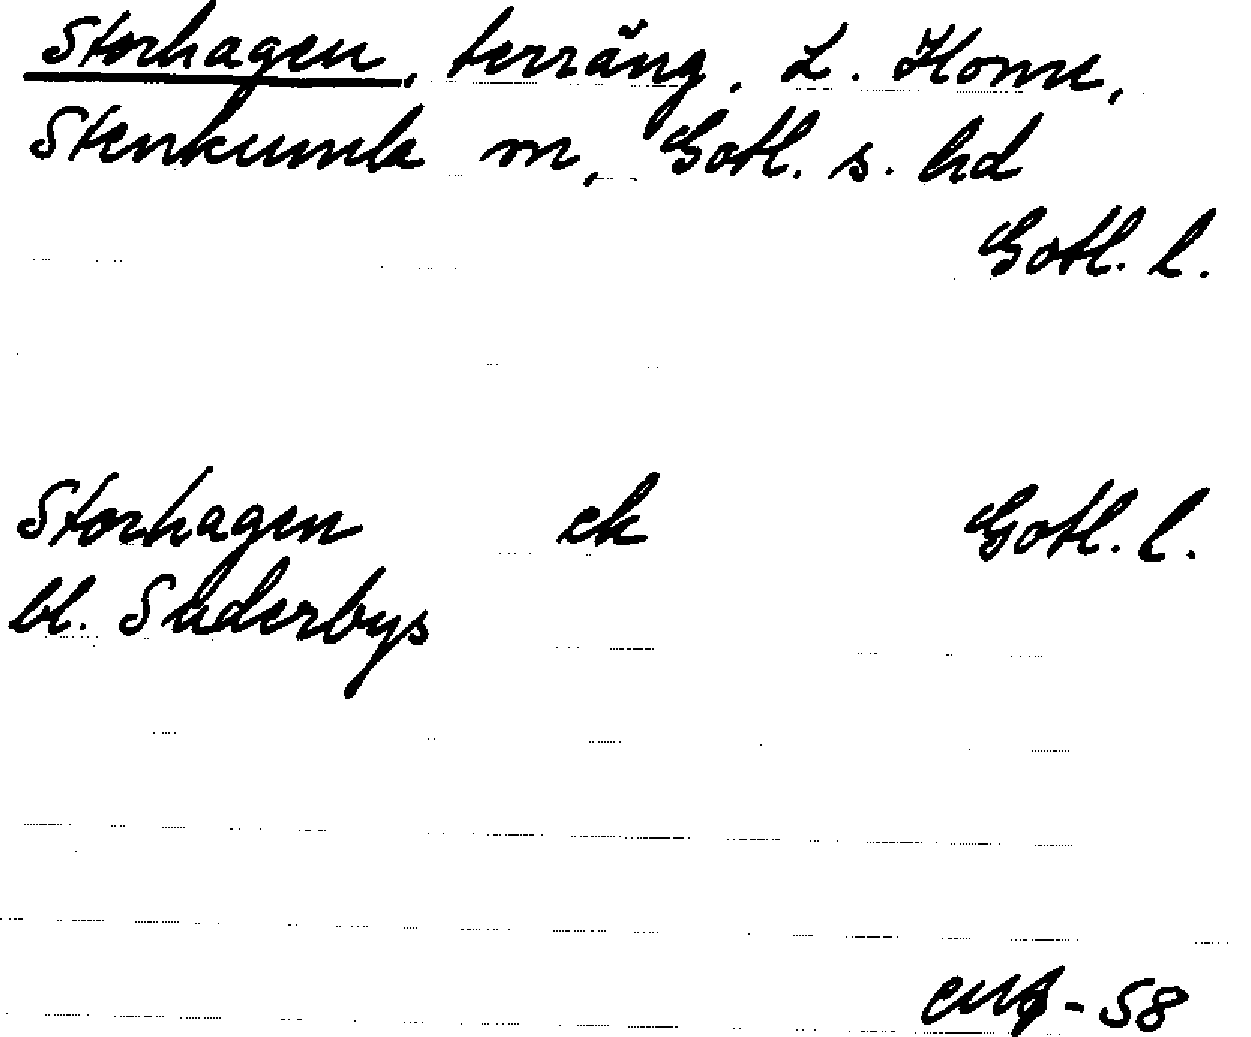 Storhagen, terräng. L. Home,
Stenkumla sn, Gotl. s. hd
Gotl. l.
Storhagen ek Gotl. l.
bl. Suderbys
-58